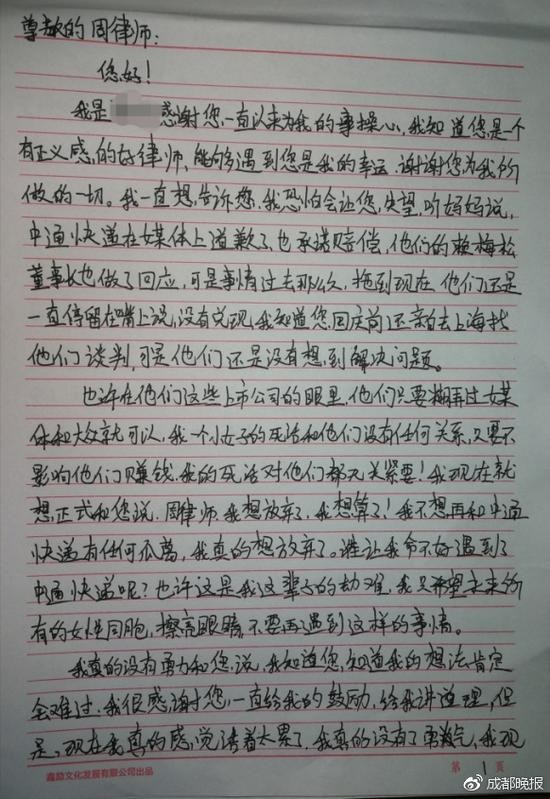 尊敬的周律师：
您好！
我是 感谢您,一直以来为我的事操心,我知道您是一个
有正义感,的好律师,能够遇到您是我的幸运.谢谢您为我所
做的一切。我一直想,告诉您.我恐怕会让您,失望,听妈妈说,
中通快递在媒体上道歉了.也承诺赔偿,他们的赖梅松
董事长也做了回应,可是事情过去那么久,拖到现在 他们还是
一直停留在嘴上说,没有兑现.我知道您.国庆前还亲自去上海找
他们谈判,可是他们还是没有想,到解决问题。
也许在他们这些上市公司的眼里.他们只要糊弄过媒
体和大众就可以,我一个小女子的死活和他们没有任何关系,只要不
影响他们赚钱.我的死活对他们都无关紧要！我现在就
想,正式和您说.周律师.我想放弃了.我想算了！我不想再和中通
快递有任何瓜葛,我真的想放弃了。谁让我命不好遇到了
中通快递呢？也许这是我这辈子的劫难.我只希望未来所
有的女性同胞,擦亮眼睛,不要再遇到这样的事情。
我真的没有勇力和您,说,我知道您,知道我的想法肯定
会难过.我很感谢您,一直给我的鼓励,给我讲道理,但
是,现在我真的感,觉活着太累了.我真的没有了勇气,我现
鑫励文化发展有限公司出品
第 1 页
成都晚报